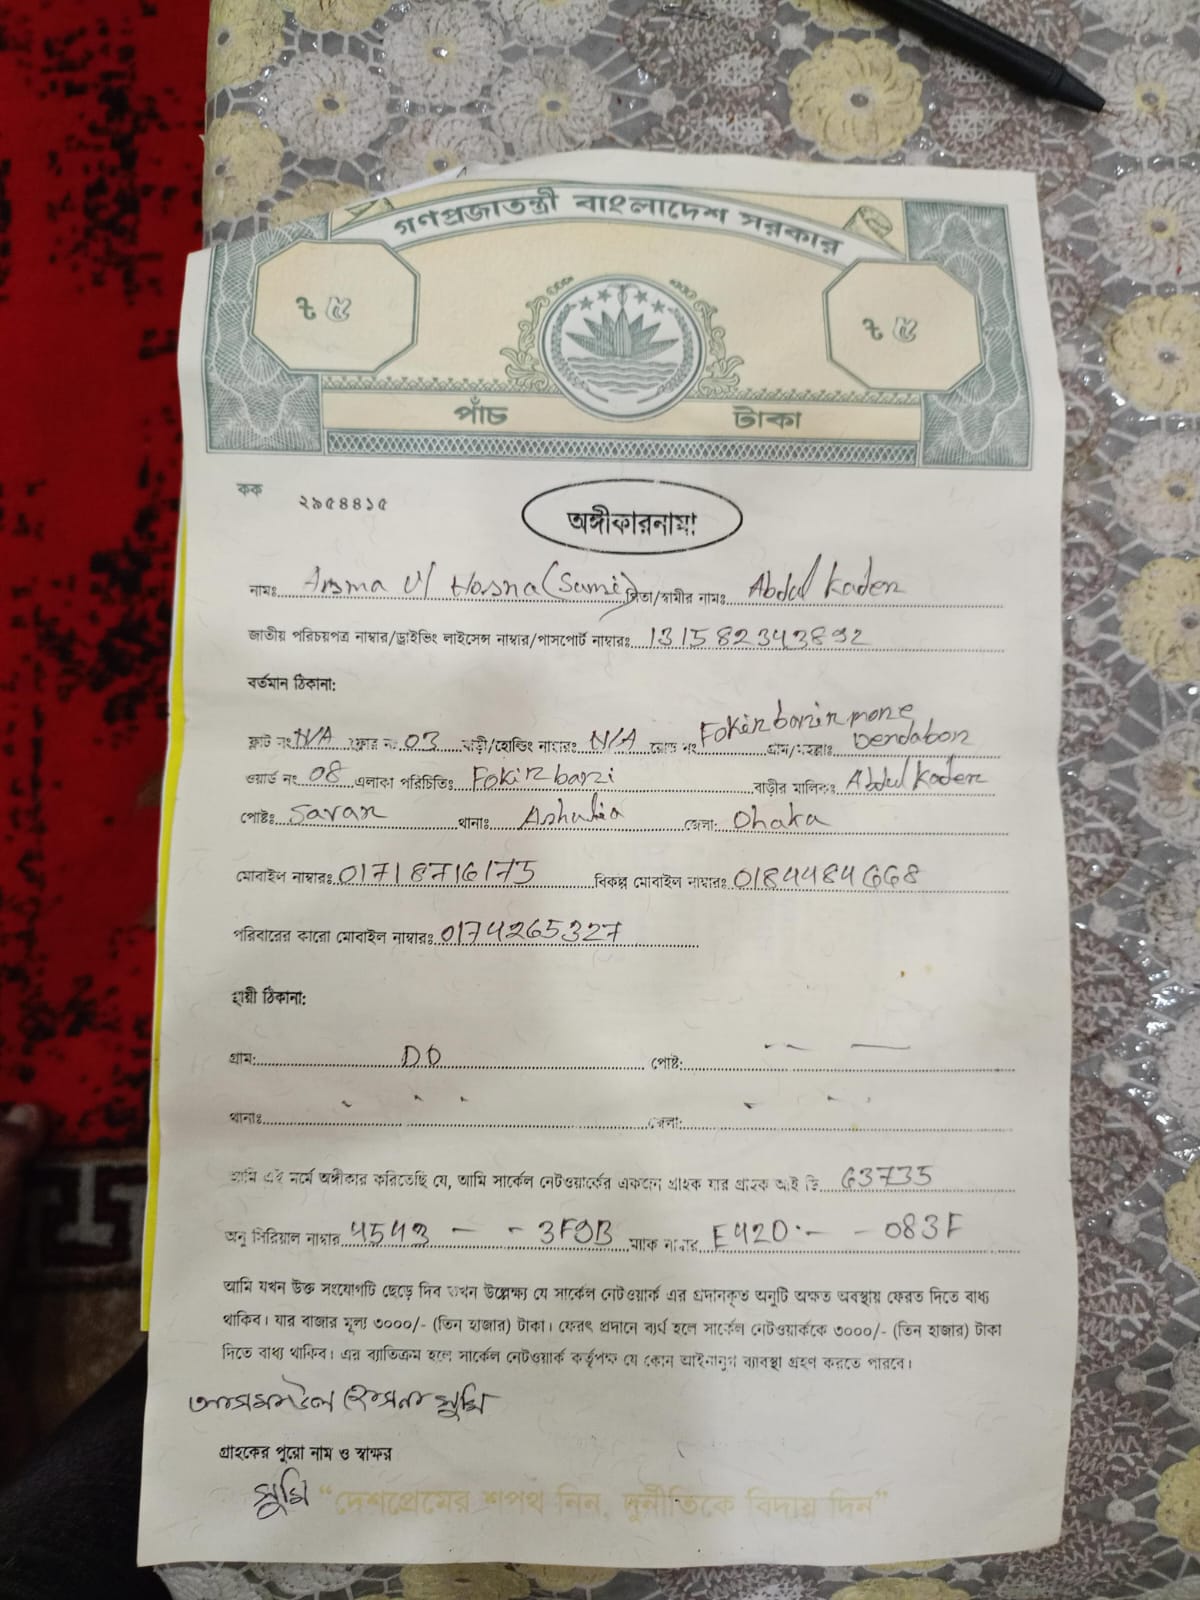 গণপ্রজাতন্ত্রী বাংলাদেশ সরকার
৳ ৫ ৳ ৫
পাঁচ টাকা
কক ২৯৫৪৪১৫
অঙ্গীকারনামা
নামঃ Arsma Ul Hosna (Sumi) পিতা/স্বামীর নামঃ Abdul Kader
জাতীয় পরিচয়পত্র নাম্বার/ড্রাইভিং লাইসেন্স নাম্বার/পাসপোর্ট নাম্বারঃ 131582343892
বর্তমান ঠিকানা:
ফ্লাট নং N/A ফ্লোর নং 03 বাড়ী/হোল্ডিং নাম্বারঃ N/A রোড নং Fokir barir more গ্রাম/মহল্লাঃ Dendabor
ওয়ার্ড নং 08 এলাকা পরিচিতিঃ Fokir bari বাড়ীর মালিকঃ Abdul Kader
পোষ্টঃ Savar থানাঃ Ashulia জেলা: Dhaka
মোবাইল নাম্বারঃ 01718716175 বিকল্প মোবাইল নাম্বারঃ 01844844668
পরিবারের কারো মোবাইল নাম্বারঃ 01744265327
স্থায়ী ঠিকানা:
গ্রাম: DO পোষ্ট:
থানাঃ জেলা:
আমি এই মর্মে অঙ্গীকার করিতেছি যে, আমি সার্কেল নেটওয়ার্কের একজন গ্রাহক যার গ্রাহক আই ডি 63735
অনু সিরিয়াল নাম্বার 4543 - - 3F9B ম্যাক নাম্বার E42D - - 083F
আমি যখন উক্ত সংযোগটি ছেড়ে দিব তখন উল্লেক্ষ্য যে সার্কেল নেটওয়ার্ক এর প্রদানকৃত অনুটি অক্ষত অবস্থায় ফেরত দিতে বাধ্য
থাকিব। যার বাজার মূল্য ৩০০০/- (তিন হাজার) টাকা। ফেরৎ প্রদানে ব্যর্থ হলে সার্কেল নেটওয়ার্ককে ৩০০০/- (তিন হাজার) টাকা
দিতে বাধ্য থাকিব। এর ব্যাতিক্রম হলে সার্কেল নেটওয়ার্ক কর্তৃপক্ষ যে কোন আইনানুগ ব্যাবস্থা গ্রহণ করতে পারবে।
আসমাউল হোসনা সুমি
গ্রাহকের পুরো নাম ও স্বাক্ষর
সুমি
“দেশপ্রেমের শপথ নিন, দুর্নীতিকে বিদায় দিন”